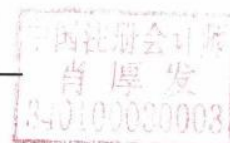 中国注册会计师
肖厚发
340100030003